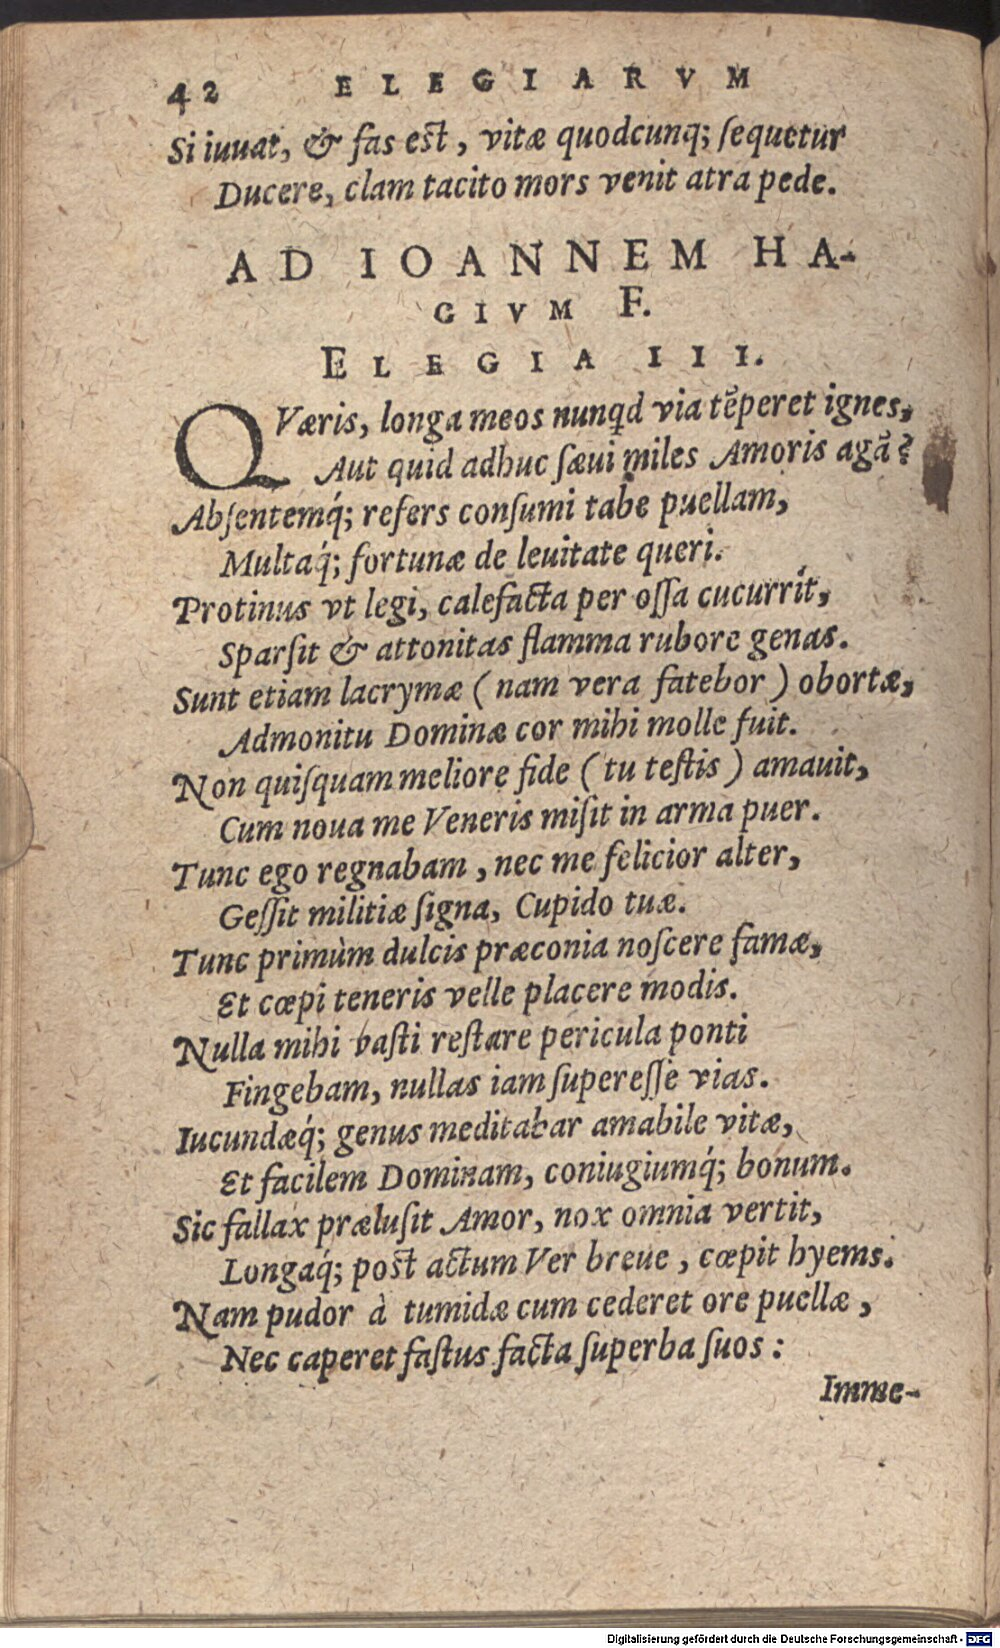 42 ELEGIARVM
Si iuuat, & fas est, vitæ quodcunq; ſequetur
Ducere, clam tacito mors venit atra pede.
AD IOANNEM HA-
GIVM F.
ELEGIA III.
QVæris, longa meos nunqd via tẽperet ignes,
Aut quid adhuc ſæui miles Amoris agã?
Abſentemq́; refers conſumi tabe puellam,
Multaq́; fortunæ de leuitate queri.
Protinus vt legi, calefacta per oſſa cucurrit,
Sparſit & attonitas flamma rubore genas.
Sunt etiam lacrymæ (nam vera fatebor) obortæ,
Admonitu Dominæ cor mihi molle fuit.
Non quiſquam meliore fide (tu teſtis) amauit,
Cum noua me Veneris miſit in arma puer.
Tunc ego regnabam, nec me felicior alter,
Geſſit militiæ ſigna, Cupido tuæ.
Tunc primùm dulcis præconia noſcere famæ,
Et cœpi teneris velle placere modis.
Nulla mihi vaſti reſtare pericula ponti
Fingebam, nullas iam ſupereſſe vias.
Iucundæq́; genus meditabar amabile vitæ,
Et facilem Dominam, coniugiumq́; bonum.
Sic fallax præluſit Amor, nox omnia vertit,
Longaq́; poſt actum Ver breue, cœpit hyems.
Nam pudor à tumidæ cum cederet ore puellæ,
Nec caperet faſtus facta ſuperba ſuos:
Imme-
Digitalisierung gefördert durch die Deutsche Forschungsgemeinschaft - DFG